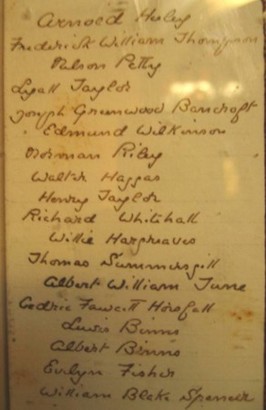 Arnold Haley
Frederick William Thompson
Nelson Petty
Lyall Taylor
Joseph Greenwood Bancroft
Edmund Wilkinson
Norman Riley
Walter Haggas
Henry Taylor
Richard Whitehall
Willie Hargreaves
Thomas Summersgill
Albert William Tune
Cedric Fawcett Horsfall
Lewis Binns
Albert Binns
Evelyn Fisher
William Blake Spencer